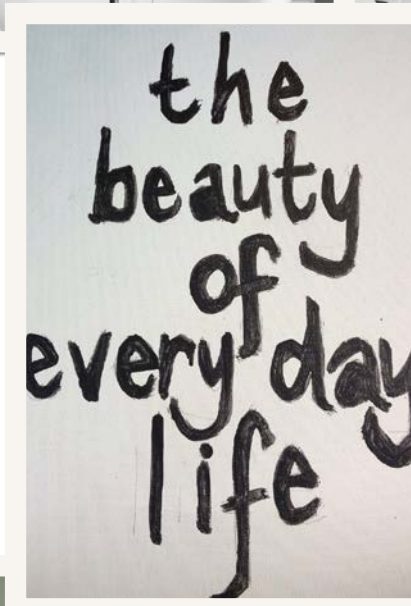 the
beauty
of
every day
life